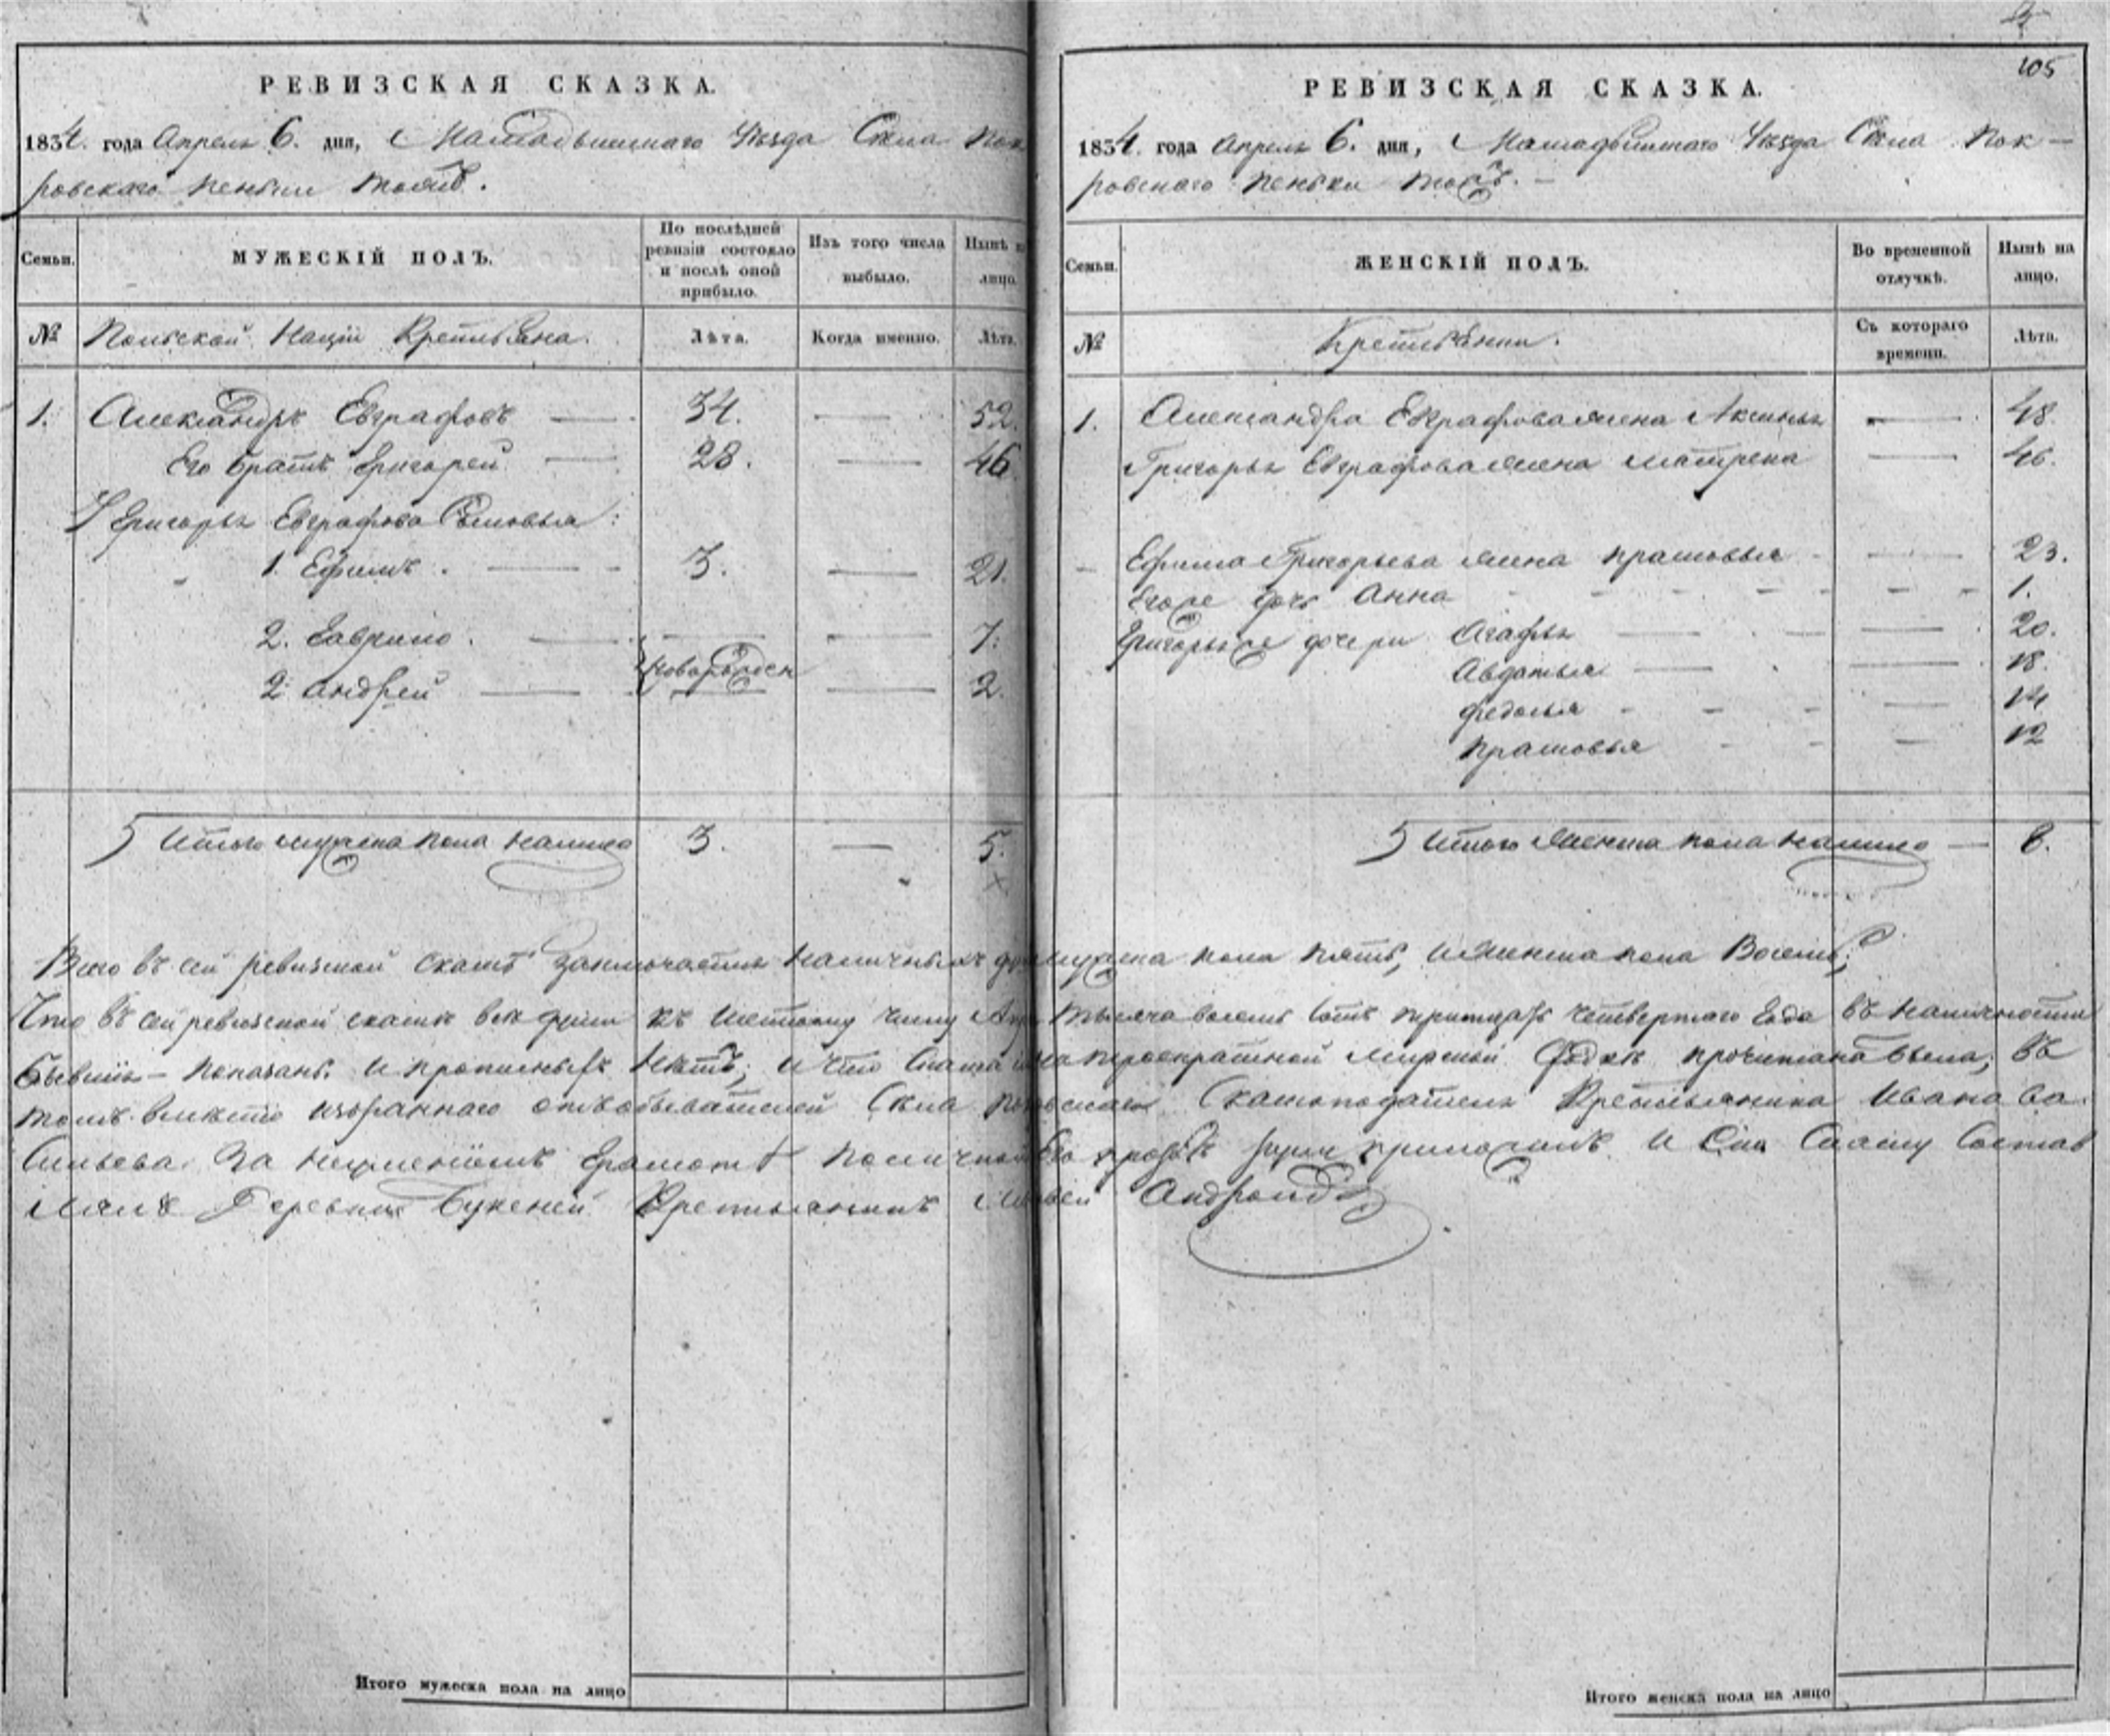 РЕВИЗСКАЯ СКАЗКА.
1834. года Апреля 6. дня, Мамадышскаго Уѣзда Села Пок
ровскаго Пеньки тожъ.
Семьи.
МУЖЕСКІЙ ПОЛЪ.
По послѣдней ревизіи состояло и послѣ оной прибыло.
Изъ того числа выбыло.
Нынѣ на лицо.
№
Польской Націи Крестьяна.
Лѣта.
Когда именно.
Лѣта.
1. Александръ Евграфовъ — 34. — 52.
Его братъ Григорей — 28. — 46
У Григорья Евграфова Сыновья:
1. Ефимъ. — 3. — 21.
2. Гаврило. — — 7.
Новорожден
2. Андрей — — 2.
Итого мужеска пола налицо 3. — 5.
105
РЕВИЗСКАЯ СКАЗКА.
1834. года Апреля 6. дня, Мамадышскаго Уѣзда Села Пок-
ровскаго Пеньки тожъ. -
Семьи.
ЖЕНСКІЙ ПОЛЪ.
Во временной отлучкѣ.
Нынѣ на лицо.
№
Крестьянки.
Съ котораго времени.
Лѣта.
1. Александра Евграфова жена Аксинья — 48.
Григорья Евграфова жена Матрена — 46.
Ефима Григорьева жена Прасковья — 23.
Его же дочь Анна - 1.
Григорья же дочери Агафья — 20.
Авдотья — 18.
Федосья — 14
Прасковья — 12
Итого женска пола налицо — 8.
Всего въ сей ревизской сказкѣ заключается наличныхъ мужеска пола пять, и женска пола Восемь;
Что въ сей ревизской сказкѣ всѣ души къ шестому числу тысяча восемь сотъ тритцать четвертаго Года въ наличности
бывшія - показаны и прописныхъ нѣтъ; и что Сказка на троекратной мирской сходкѣ прочитана была; въ
томъ вместо избраннаго отъ обывателей Села Сказкоподателя Крестьянина Ивана Ва-
сильева За неумѣніемъ Грамотѣ по личной Его прозьбѣ руку приложилъ И Сію Сказку Состав
лялъ Деревни Крестьянинъ Андреевъ
Итого мужеска пола на лицо
Итого женска пола на лицо